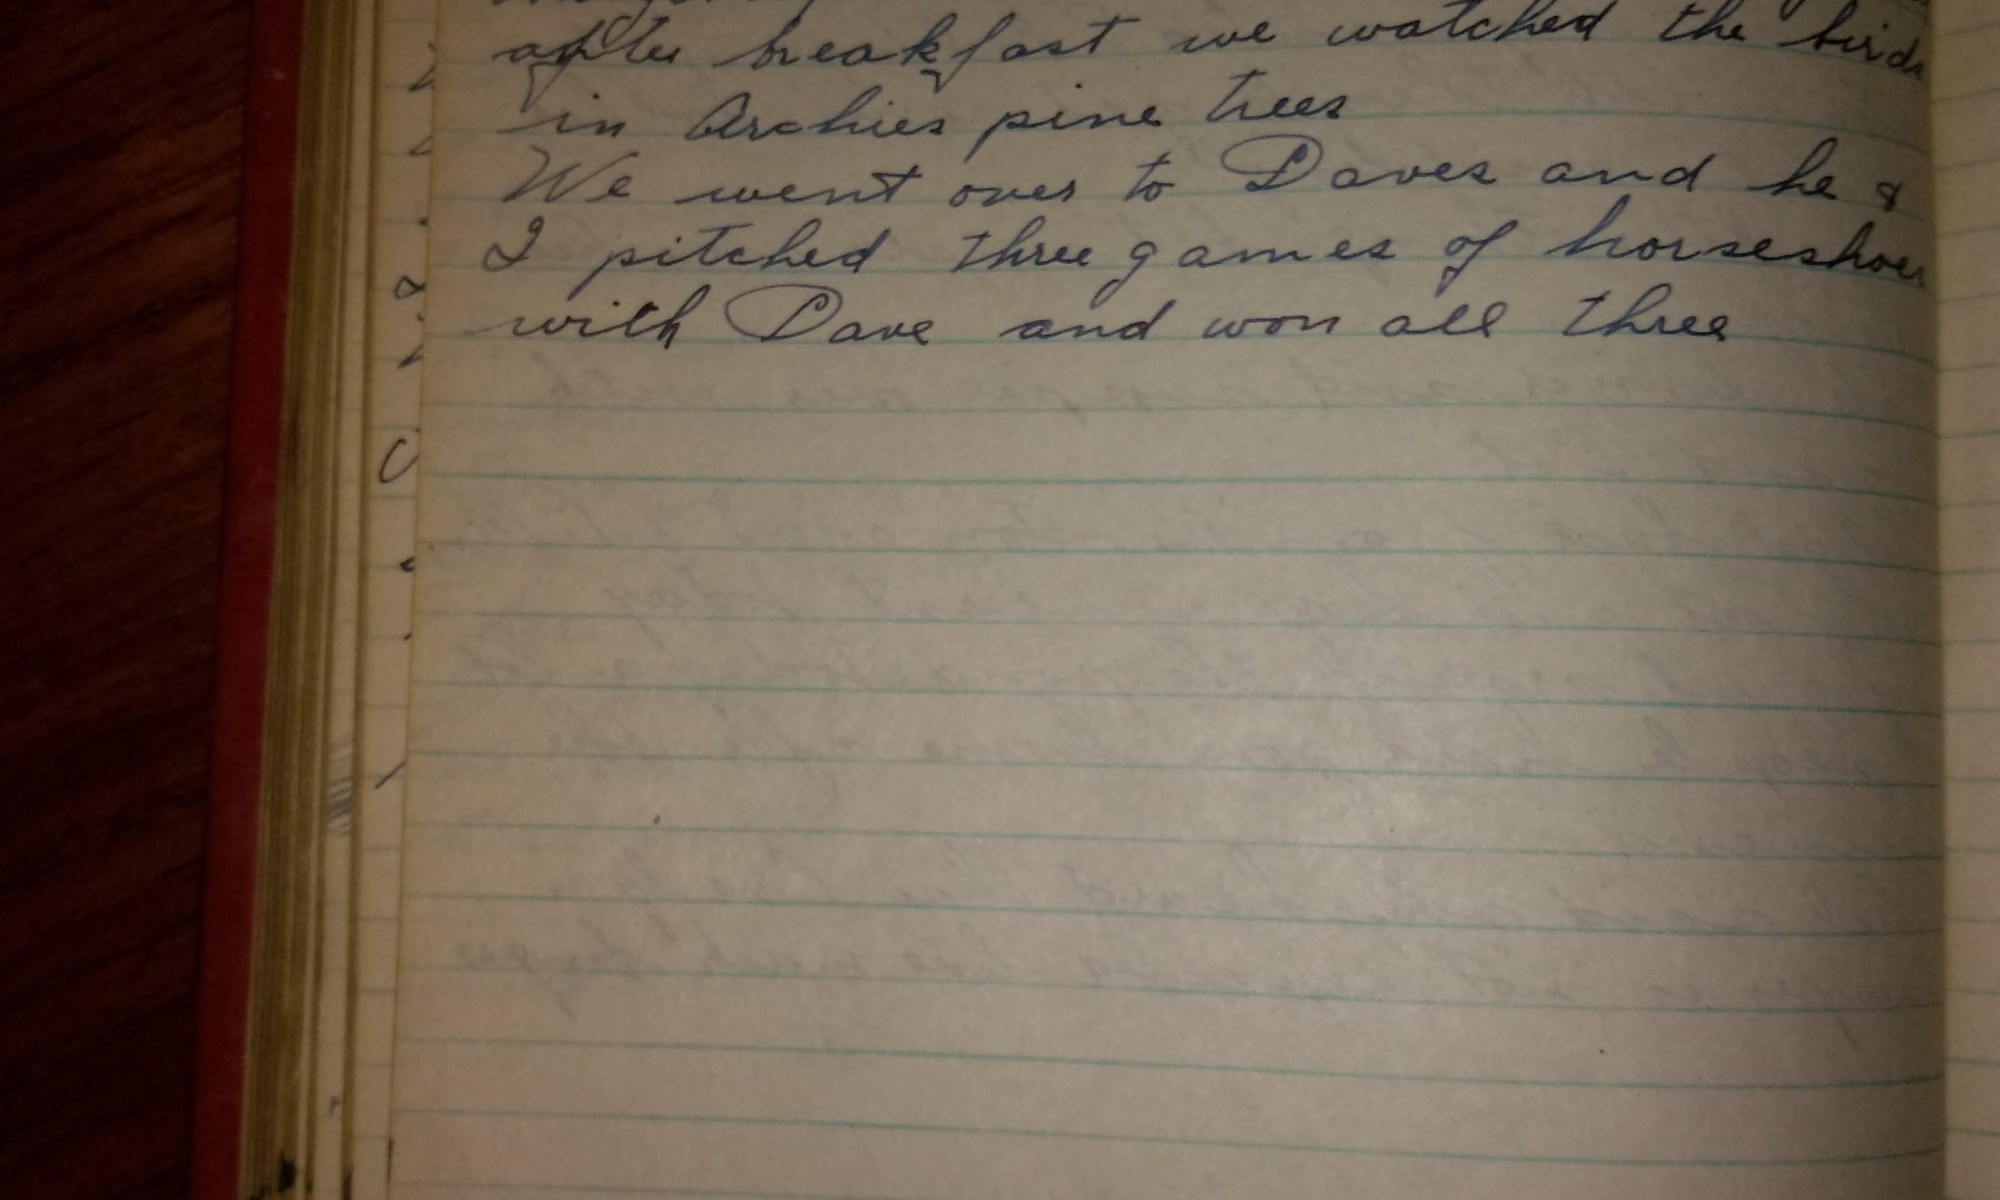 after breakfast we watched the birds
in Archies pine trees
We went over to Daves and he &
I pitched three games of horseshoes
with Dave and won all three